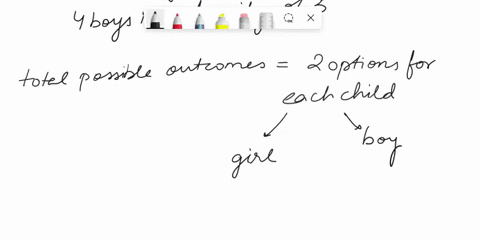 4 boys
total possible outcomes = 2 options for
each child
girl
boy